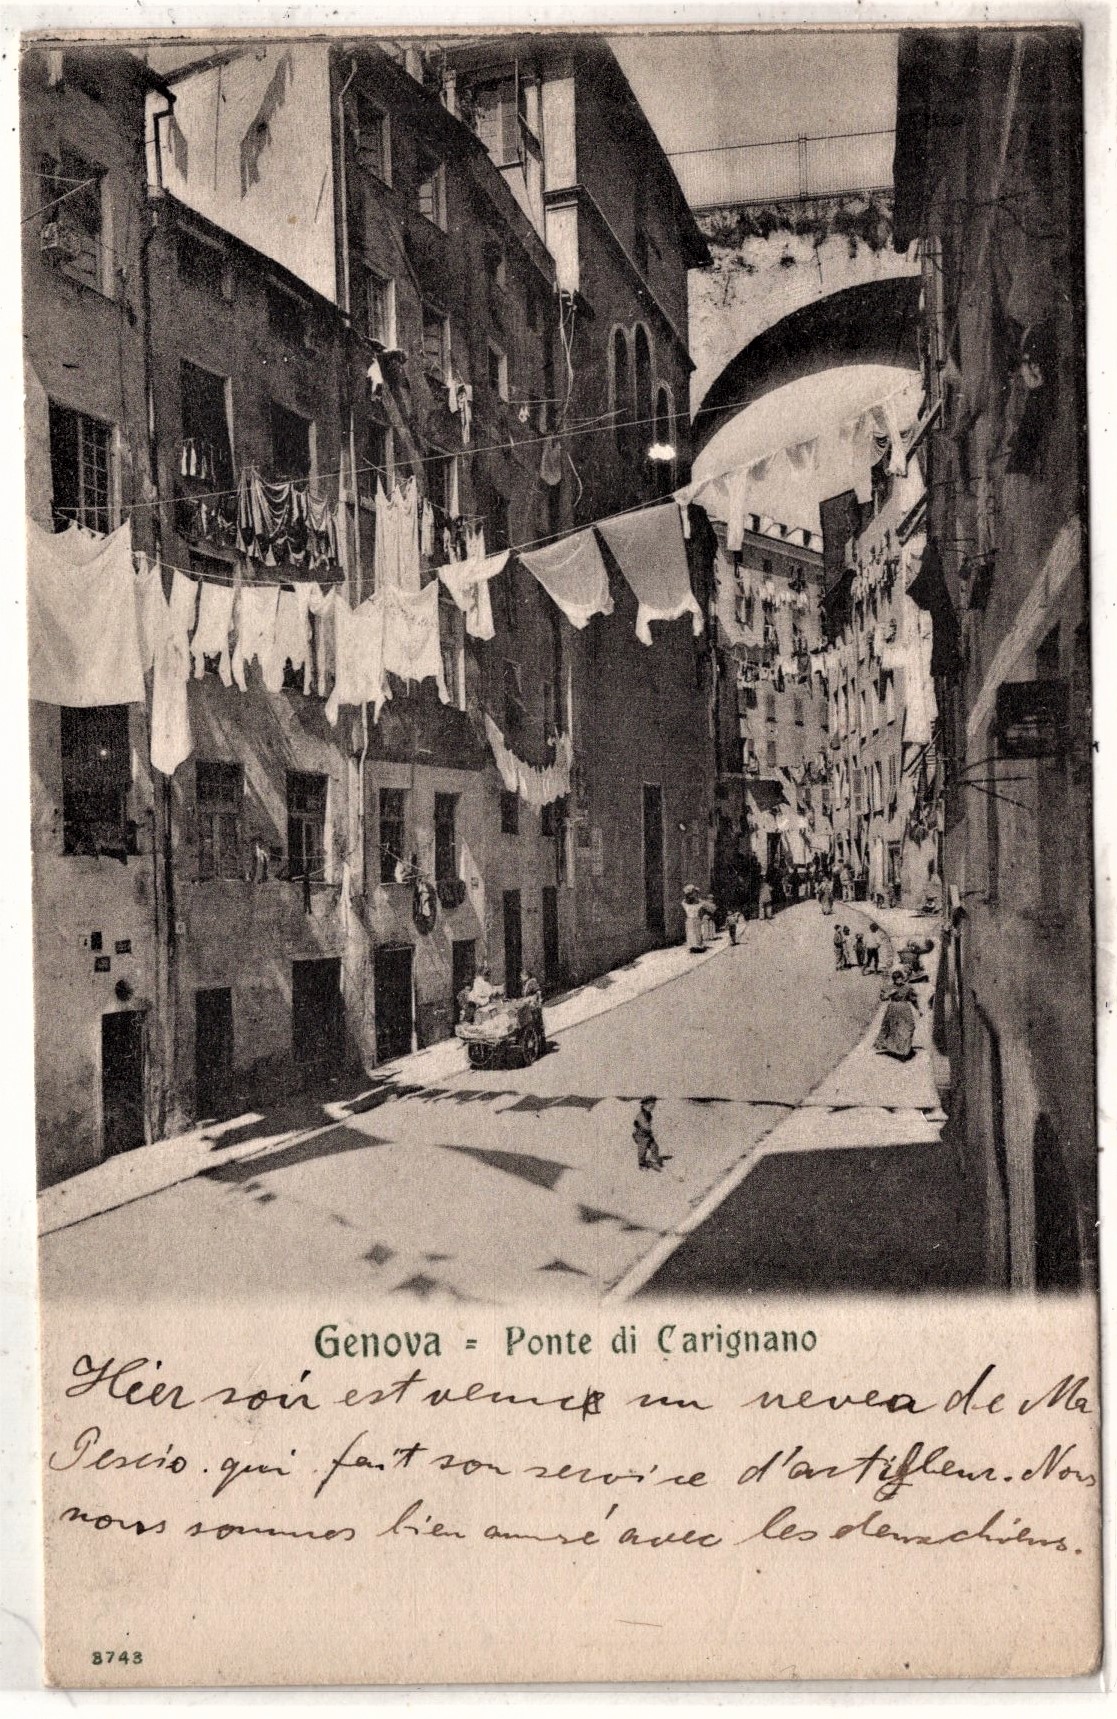 Genova = Ponte di Carignano
Hier soir est venu un neveu de Ma
Pescio. qui fait son service d'artilleur. Nous
nous sommes bien amusé avec les deux chiens.
8743